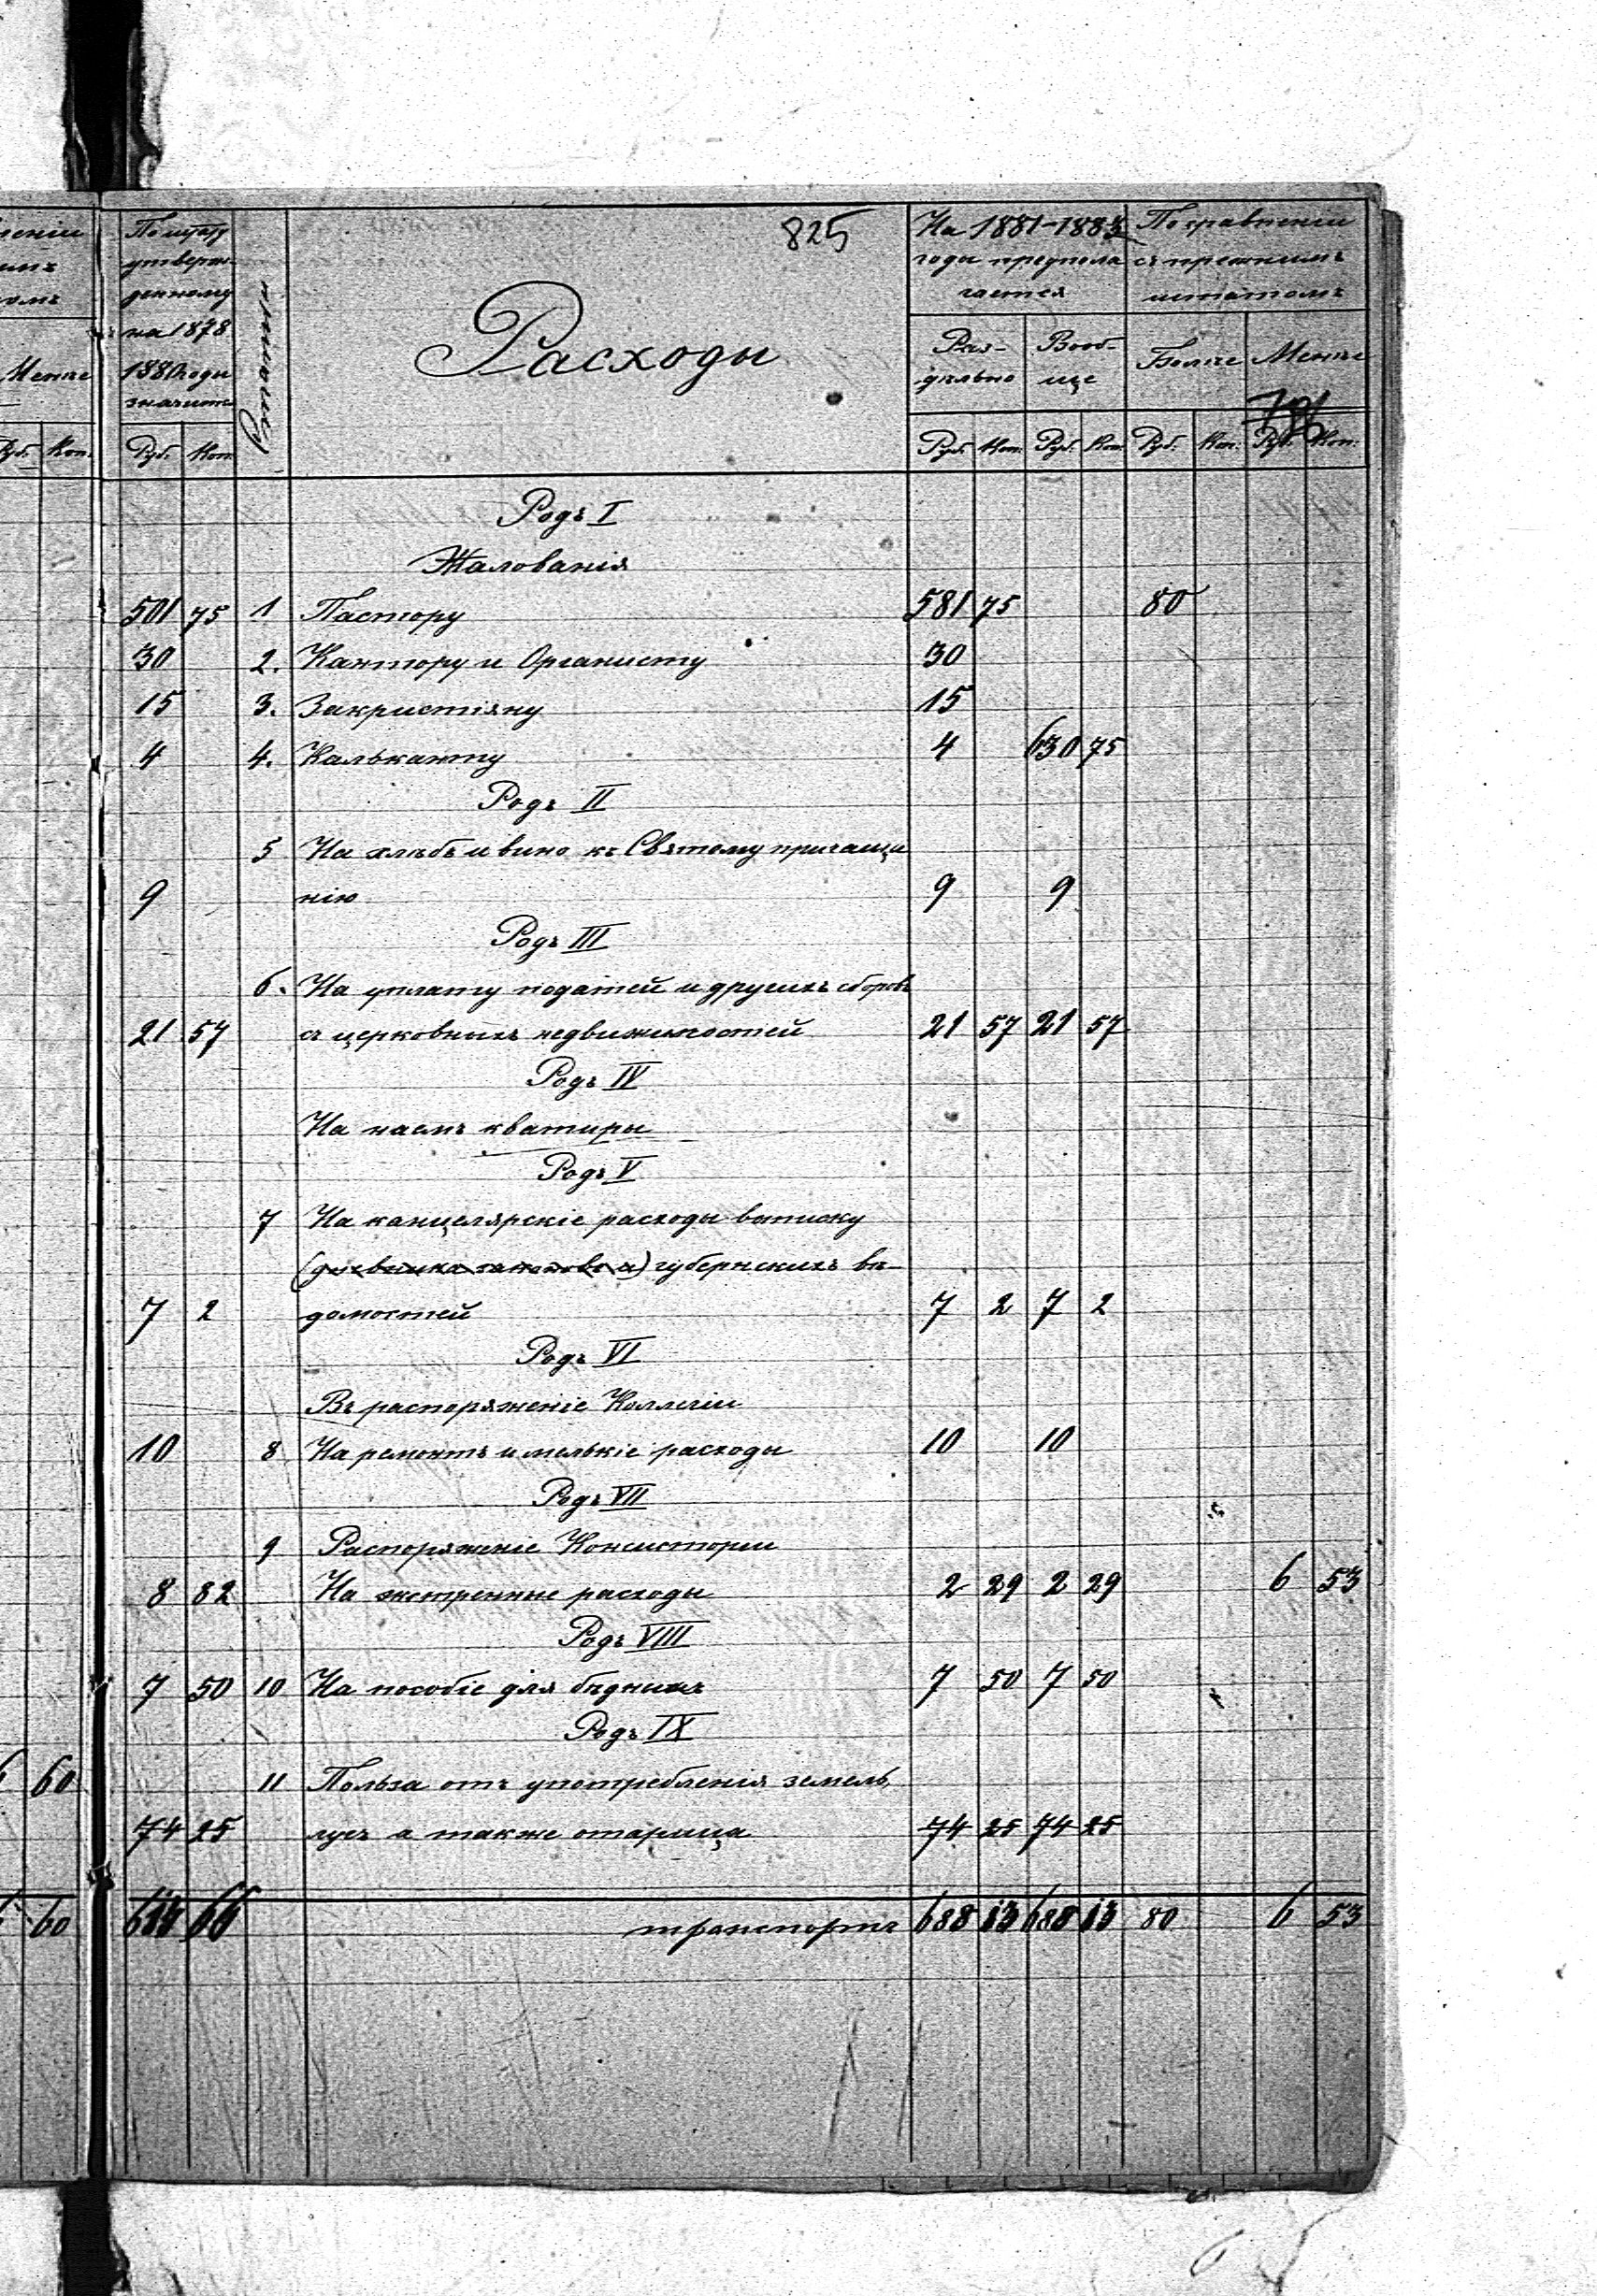 825
По штату утверж-
денному
на 1878
1880 годы
значится
Руб. Коп.
Расходы
На 1881-1883
годы предпола
гается
Раз-
дѣльно
Вооб-
ще
По сравненіи
съ прежнимъ
штатомъ
Болѣе Менѣе
Руб. Коп. Руб. Коп. Руб. Коп. Руб. Коп.
Менѣе
Руб. Коп.
Родъ I
Жалованія
501 75 1 Пастору 581 75 80
30 2. Кантору и Органисту 30
15 3. Закристіяну 15
4 4. Кальканту 4 630 75
Родъ II
5 На хлѣбъ и вино къ Святому причаще
9 нію 9 9
Родъ III
6. На уплату податей и другихъ сборовъ
21 57 съ церковныхъ недвижимостей 21 57 21 57
Родъ IV
На наемъ кватиры
Родъ V
7 На канцелярскіе расходы выписку
губернскихъ вѣ-
7 2 домостей 7 2 7 2
Родъ VI
Въ распоряженіе Коллегіи
10 8 На ремонтъ и мелькіе расходы 10 10
Родъ VII
9 Распоряженіе Консисторіи
8 82 На экстренные расходы 2 29 2 29 6 53
Родъ VIII
7 50 10 На пособіе для бѣдныхъ 7 50 7 50
Родъ IX
60 11 Польза отъ употребленія земель,
74 25 лугъ а также отарица 74 25 74 25
60 транспортъ 688 13 688 13 80 6 53